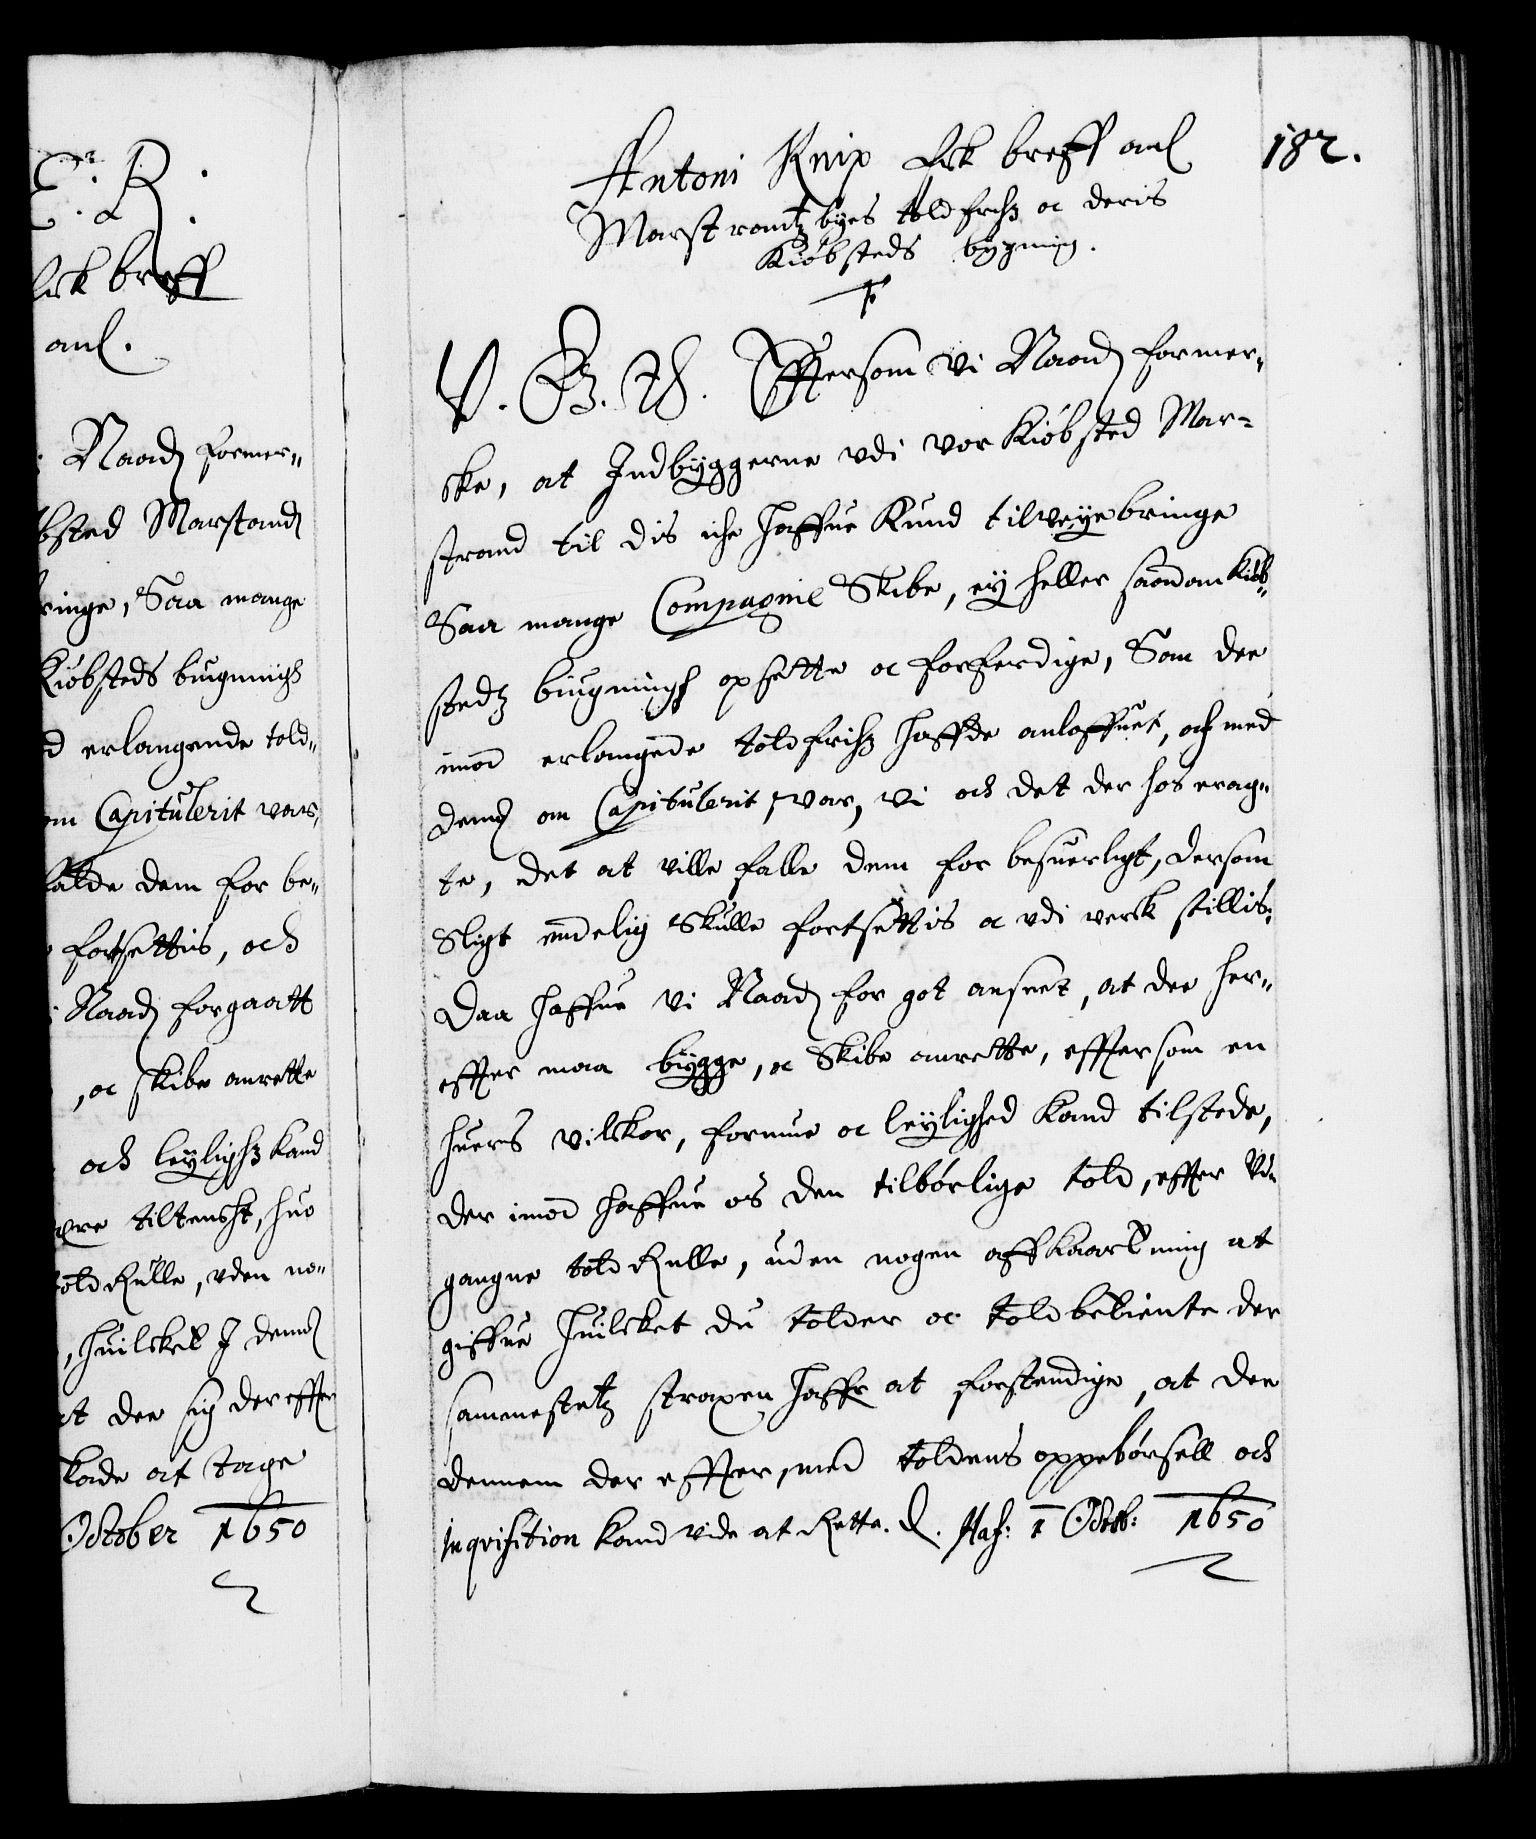 E. R.
fick breff
anl.
Naad: former-
bsted Marstand
ringe, Saa mange
Kiøbsteds bugningh
d erlangende told-
om Capitulerit var,
falde dem for be-
fortsettis, och
Naad: forgaatt
, oc skibe anrette
och leylighz kand
tiltenckt, huo
told Rulle, vden no-
, huilcket I dennem
at dee sig der effter
kade at tage
October 1650
182.
Antoni Knip fick breff anl
Marstrandtz byes toldfrihz oc deris
Kiøbsteds bygning.
V. G. T. Effersom vi Naad: former-
ske, at Indbyggerne vdi vor Kiøbsted Mar-
strand til dis iche haffue Kund tilveyebringe
Saa mange Compagnie Skibe, ey heller saadan Kiøb-
stedz biugningh opsette oc forferdige, Som dee
imod erlangende toldfrihz haffde anloffuet, och med
dem om Capitulerit var, vi och det der hos erag-
te, det at ville falle dem for besuerligt, dersom
Sligt endelig Skulle fortsettis oc vdi verck stillis.
Daa haffue vi Naad: for got anseet, at dee her-
effter maa bygge, oc Skibe anrette, effersom en
huers vilckor, formue oc leylighed Kand tilstede,
der imod haffue os den tilbørlige told, effter Vd-
gangne told Rulle, uden nogen affkaartning at
giffue huilcket du tolder oc toldbetiente der
sammestetz straxen haffr at forstendige, at dee
dennem der effter, med toldens oppebørsell och
inqvisition kand vide at Rette. D. Haf: 1 Octob: 1650